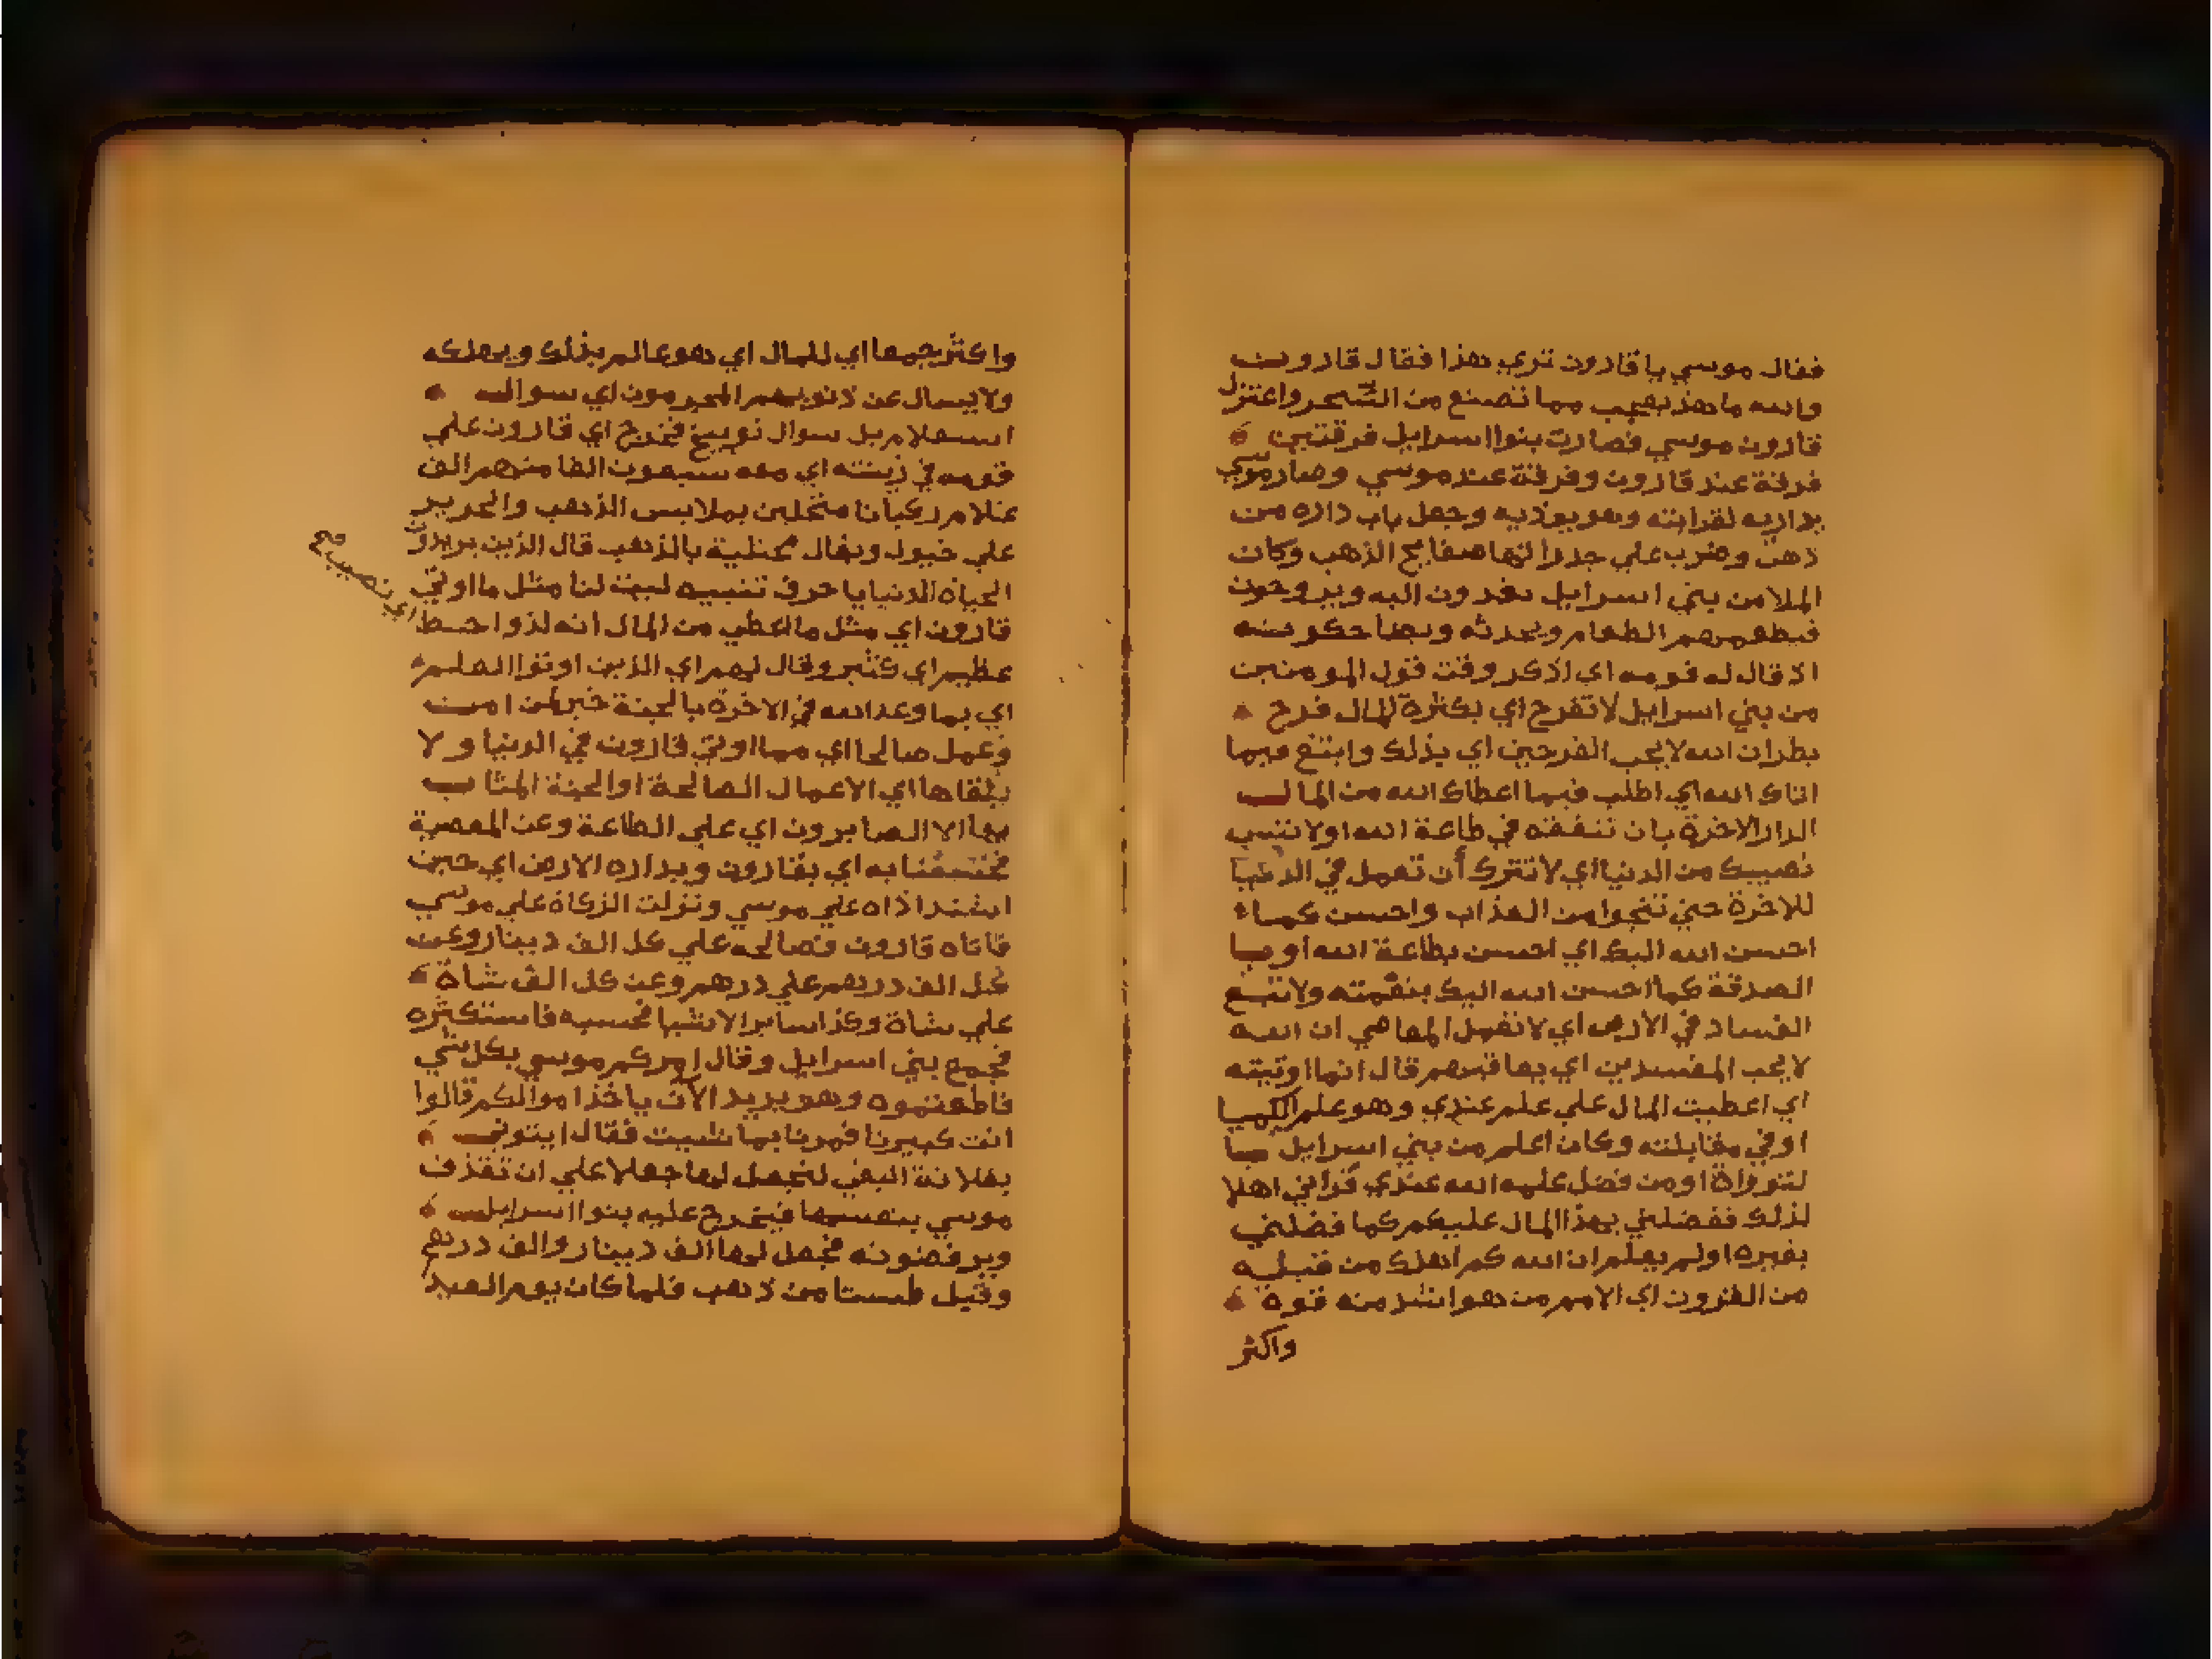 فقال موسي يا قارون تري هذا فقال قارون
والله ما هذ بعجب مما تصنع من السحر واعتزل
قارون موسي فصارت بنوا اسرايل فرقتين
فرقة عند قارون وفرقة عند موسي وصار موسي
يداريه لقرابته وهو يوذيه وجعل باب داره من
ذهب وضرب علي جدرانها صفايح الذهب وكان
الملا من بني اسرايل يغدون اليه ويروحون
فيطعمهم الطعام ويحدثه ويضاحكونه
اذ قال له قومه اي اذكر وقت قول المومنين
من بني اسرايل لا تفرح اي بكثرة المال فرح
بطر ان الله لا يحب الفرحين اي بذلك وابتغ فيما
اتاك الله اي اطلب فيما اعطاك الله من المال
الدار الاخرة بان تنفقه في طاعة الله ولا تنس
نصيبك من الدنيا اي لا تترك أن تعمل في الدنيا
للاخرة حتي تنجوا من العذاب واحسن كما
احسن الله اليك اي احسن بطاعة الله او با
الصدقة كما احسن الله اليك بنعمته ولا تبغ
الفساد في الارض اي لا تعمل المعاصي ان الله
لا يحب المفسدين اي يعاقبهم قال انما اوتيته
اي اعطيت المال علي علم عندي وهو علم الكميا
او في مقابلته وكان اعلم من بني اسرايل با
لتوراة او من فضل علمه الله عندي فراني اهلا
لذلك ففضلني بهذا المال عليكم كما فضلني
بغيره اولم يعلم ان الله كم اهلك من قبله
من القرون اي الامم من هو اشد منه قوة
واكثر
واكثر جمعا اي للمال اي هو عالم بذلك ويهلكه
ولا يسال عن ذنوبهم المجرمون اي سوال
استعلام بل سوال توبيخ فخرج اي قارون علي
قومه في زينته اي معه سبعون الفا منهم الف
غلام ركبانا متحلين بملابس الذهب والحرير
علي خيول وبغال محلية بالذهب قال الذين يريدون
الحياة الدنيا يا حرف تنبيه ليت لنا مثل ما اوتي
قارون اي مثل ما اعطي من المال انه لذوا حظ
اي نصيب صح
عظيم اي كثير وقال لهم اي الذين اوتوا العلم
اي بما وعد الله في الاخرة بالجنة خير لمن امن
وعمل صالحا اي مما اوتي قارون في الدنيا ولا
يلقاها اي الاعمال الصالحة او الجنة المثاب
بها الا الصابرون اي علي الطاعة وعن المعصية
فخسفنا به اي بقارون وبداره الارض اي حين
اشتد اذاه علي موسي ونزلت الزكاة علي موسي
فاتاه قارون فصالحه علي كل الف دينار وعن
كل الف درهم علي درهم وعن كل الف شاة
علي شاة وكذا ساير الاشيا فحسبه فاستكثره
فجمع بني اسرايل وقال امركم موسي بكل شي
فاطعتموه وهو يريد الآن ياخذ اموالكم قالوا
انت كبيرنا فمرنا بما شيت فقال ايتوني
بفلانة البغي لنجعل لها جعلا علي ان تقذف
موسي بنفسها فيخرج عليه بنوا اسرايل
ويرفضونه فجعل لها الف دينار والف درهم
وقيل طستا من ذهب فلما كان يوم العيد